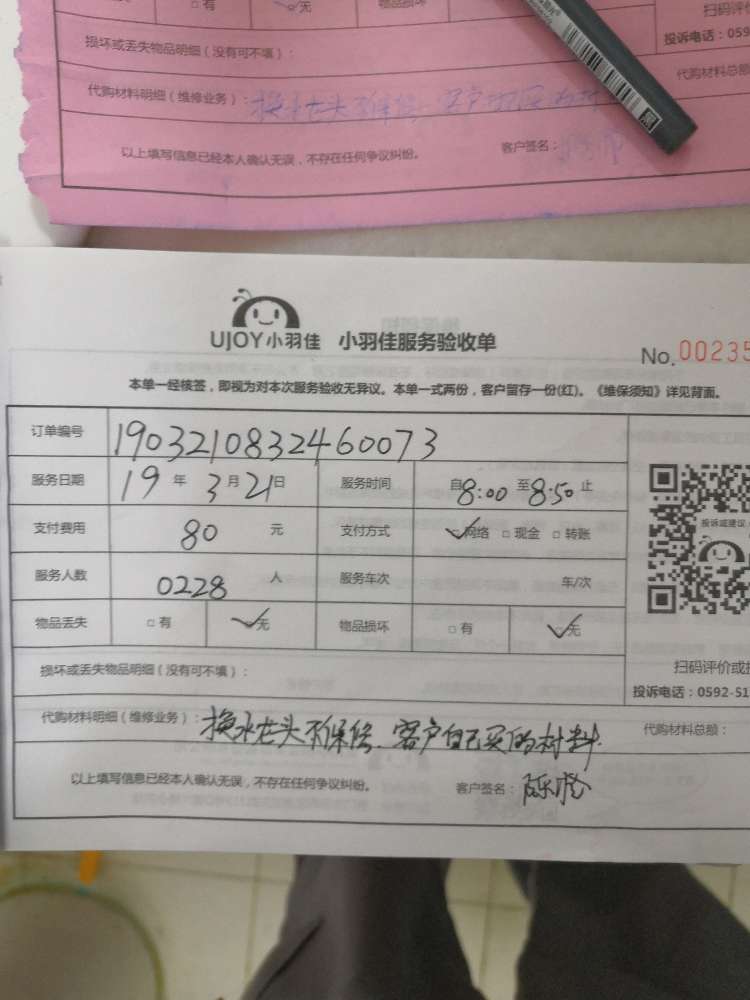 □ 有
无
物品损坏
扫码评价
损坏或丢失物品明细（没有可不填）：
投诉电话：059
代购材料明细（维修业务）：换水龙头不保修、客户自己买的材
代购材料总额
以上填写信息已经本人确认无误，不存在任何争议纠纷。 客户签名：
UJOY小羽佳 小羽佳服务验收单
No. 00235
本单一经核签，即视为对本次服务验收无异议。本单一式两份，客户留存一份(红)。《维保须知》详见背面。
订单编号 190321083246 0073
服务日期 19 年 3 月 21 日 服务时间 自 8:00 至 8:50 止
支付费用 80 元 支付方式 网络 □ 现金 □ 转账
投诉或建议
服务人数 0228 人 服务车次 车/次
物品丢失 □ 有 无 物品损坏 □ 有 无
损坏或丢失物品明细（没有可不填）：
扫码评价或
投诉电话：0592-51
代购材料明细（维修业务）：换水龙头不保修、客户自己买的材料. 代购材料总额：
以上填写信息已经本人确认无误，不存在任何争议纠纷。 客户签名：陈